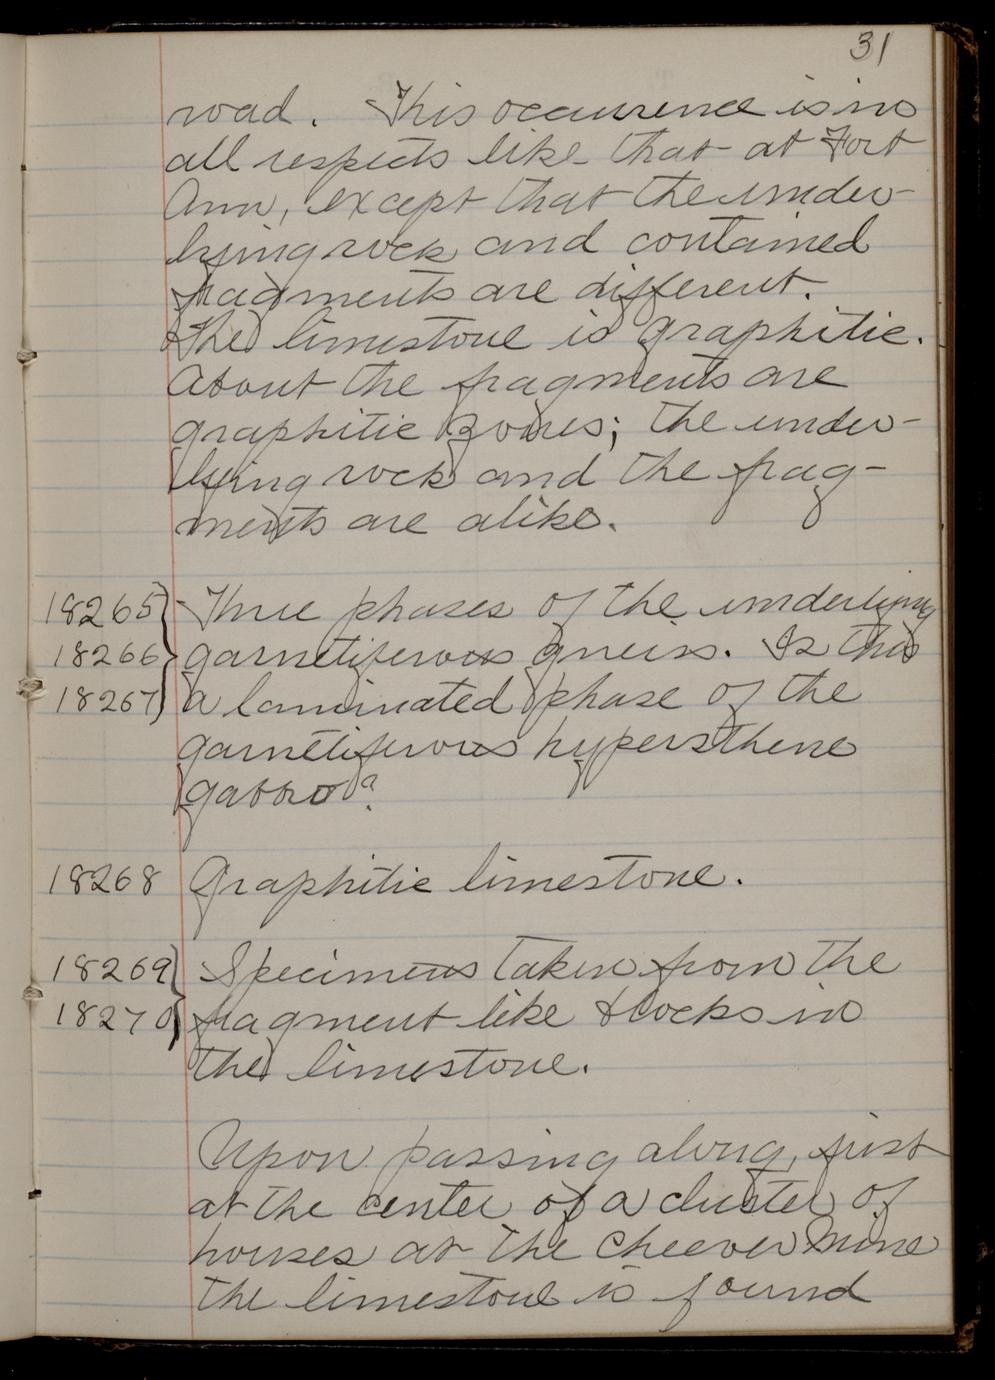 31
road. This occurrence is in
all respects like that at Fort
Ann, except that the under-
lying rock and contained
fragments are different.
The limestone is graphitic.
About the fragments are
graphitic zones; the under-
lying rock and the frag-
ments are alike.
18265 Three phases of the underlying
18266 garnetiferous gneiss. Is this
18267 a laminated phase of the
garnetiferous hypersthene
gabbro?
18268 Graphitic limestone.
18269 Specimens taken from the
18270 fragment like blocks in
the limestone.
Upon passing along, just
at the center of a cluster of
houses at the Cheever Mine
the limestone is found